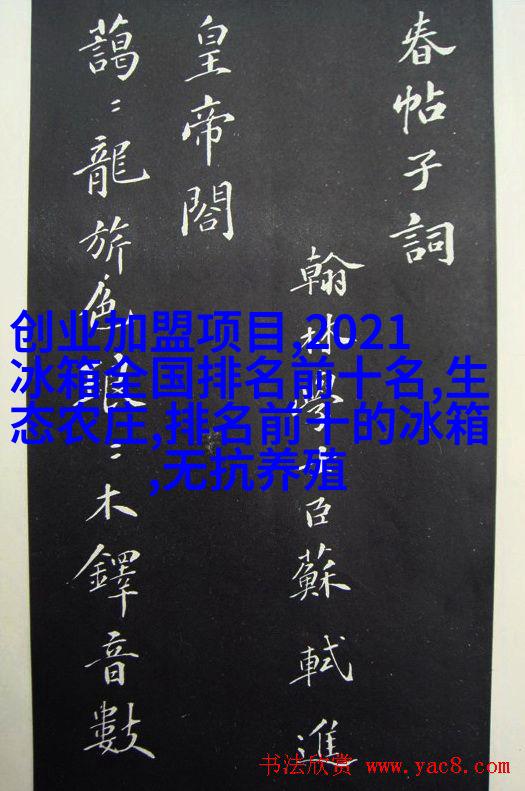 春帖子詞
翰林學士臣蘇軾進
皇帝閣
藹〻龍旂色琅〻木鐸音數
创业加盟项目,2021
冰箱全国排名前十名,生
态农庄,排名前十的冰箱
,无抗养殖
书法欣赏 www.yac8.com